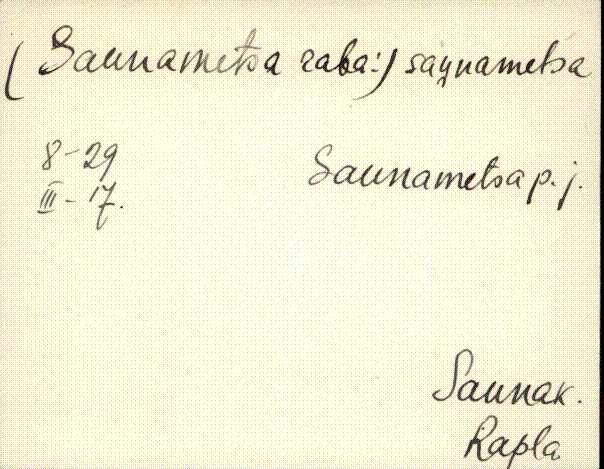 (Saunametsa raba:) sau̯nametsa
8-29
Saunametsa p. j.
III-17.
Saunak.
Rapla